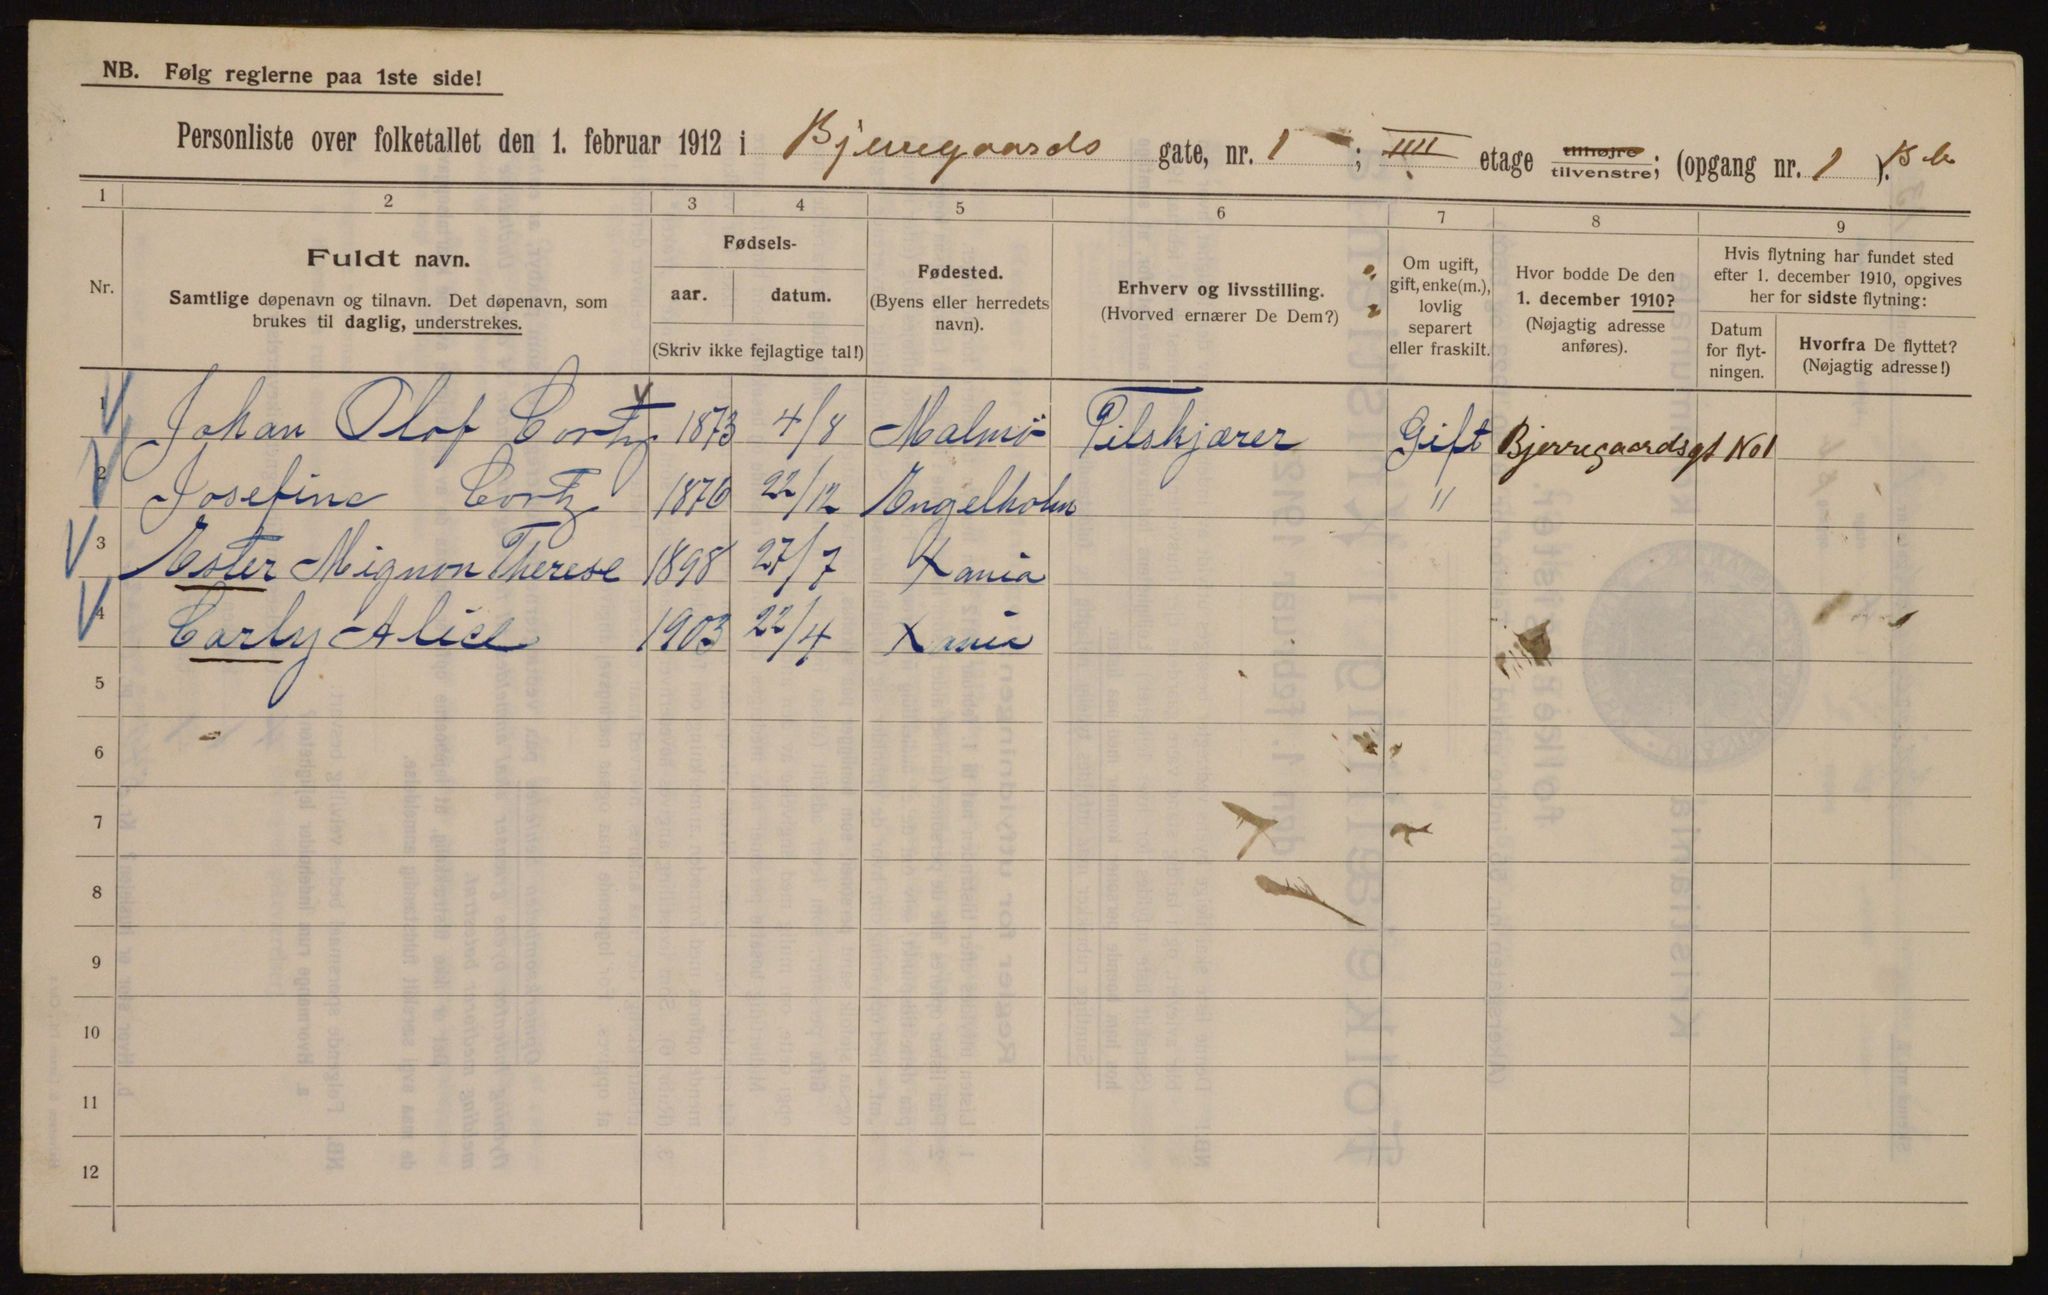 NB. Følg reglerne paa 1ste side!
Personliste over folketallet den 1. februar 1912 i Bjerregaards gate, nr. 1; IIII etage tilhøjre tilvenstre; (opgang nr. 1).
1 2 3 4 5 6 7 8 9
Nr.
Fuldt navn.
Samtlige døpenavn og tilnavn. Det døpenavn, som
brukes til daglig, understrekes.
Fødsels-
aar. datum.
(Skriv ikke fejlagtige tal!)
Fødested.
(Byens eller herredets
navn).
Erhverv og livsstilling.
(Hvorved ernærer De Dem?)
Om ugift,
gift, enke(m.),
lovlig
separert
eller fraskilt.
Hvor bodde De den
1. december 1910?
(Nøjagtig adresse
anføres).
Hvis flytning har fundet sted
efter 1. december 1910, opgives
her for sidste flytning:
Datum
for flyt-
ningen.
Hvorfra De flyttet?
(Nøjagtig adresse!)
1 Johan Olof Cortz 1873 4/8 Malmö Filskjærer Gift Bjerregaardsgt No 1
2 Josefine Cortz 1876 22/12 Engelholm "
3 Ester Mignon Therese 1898 27/7 Xania
4 Carly Alice 1903 22/4 Xania
5
6
7
8
9
10
11
12